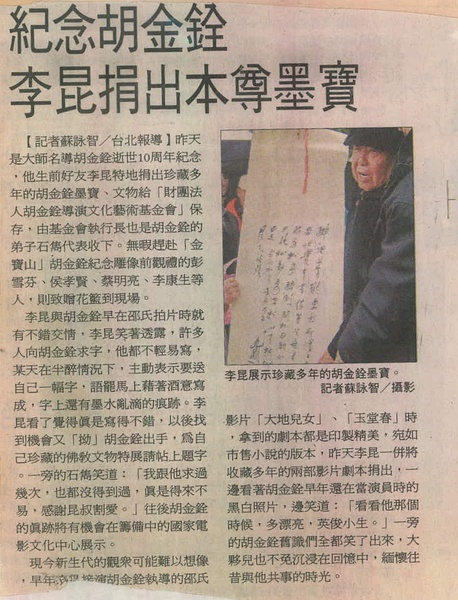 紀念胡金銓
李昆捐出本尊墨寶
【記者蘇詠智／台北報導】昨天
是大師名導胡金銓逝世10周年紀念
，他生前好友李昆特地捐出珍藏多
年的胡金銓墨寶、文物給「財團法
人胡金銓導演文化藝術基金會」保
存，由基金會執行長也是胡金銓的
弟子石雋代表收下。無暇趕赴「金
寶山」胡金銓紀念雕像前觀禮的彭
雪芬、侯孝賢、蔡明亮、李康生等
人，則致贈花籃到現場。
李昆與胡金銓早在邵氏拍片時就
有不錯交情，李昆笑著透露，許多
人向胡金銓求字，他都不輕易寫，
某天在半醉情況下，主動表示要送
自己一幅字，語罷馬上藉著酒意寫
成，字上還有墨水亂滴的痕跡。李
昆看了覺得真是寫得不錯，以後找
到機會又「拗」胡金銓出手，為自
己珍藏的佛教文物特展請帖上題字
。一旁的石雋笑道：「我跟他求過
幾次，也都沒得到過，真是得來不
易，感謝昆叔割愛。」往後胡金銓
的真跡將有機會在籌備中的國家電
影文化中心展示。
現今新生代的觀眾可能難以想像
，早年
演胡金銓執導的邵氏
李昆展示珍藏多年的胡金銓墨寶。
記者蘇詠智／攝影
影片「大地兒女」、「玉堂春」時
，拿到的劇本都是印製精美，宛如
市售小說的版本，昨天李昆一併將
收藏多年的兩部影片劇本捐出，一
邊看著胡金銓早年還在當演員時的
黑白照片，邊笑道：「看看他那個
時候，多漂亮，英俊小生。」一旁
的胡金銓舊識們全都笑了出來，大
夥兒也不免沉浸在回憶中，緬懷往
昔與他共事的時光。